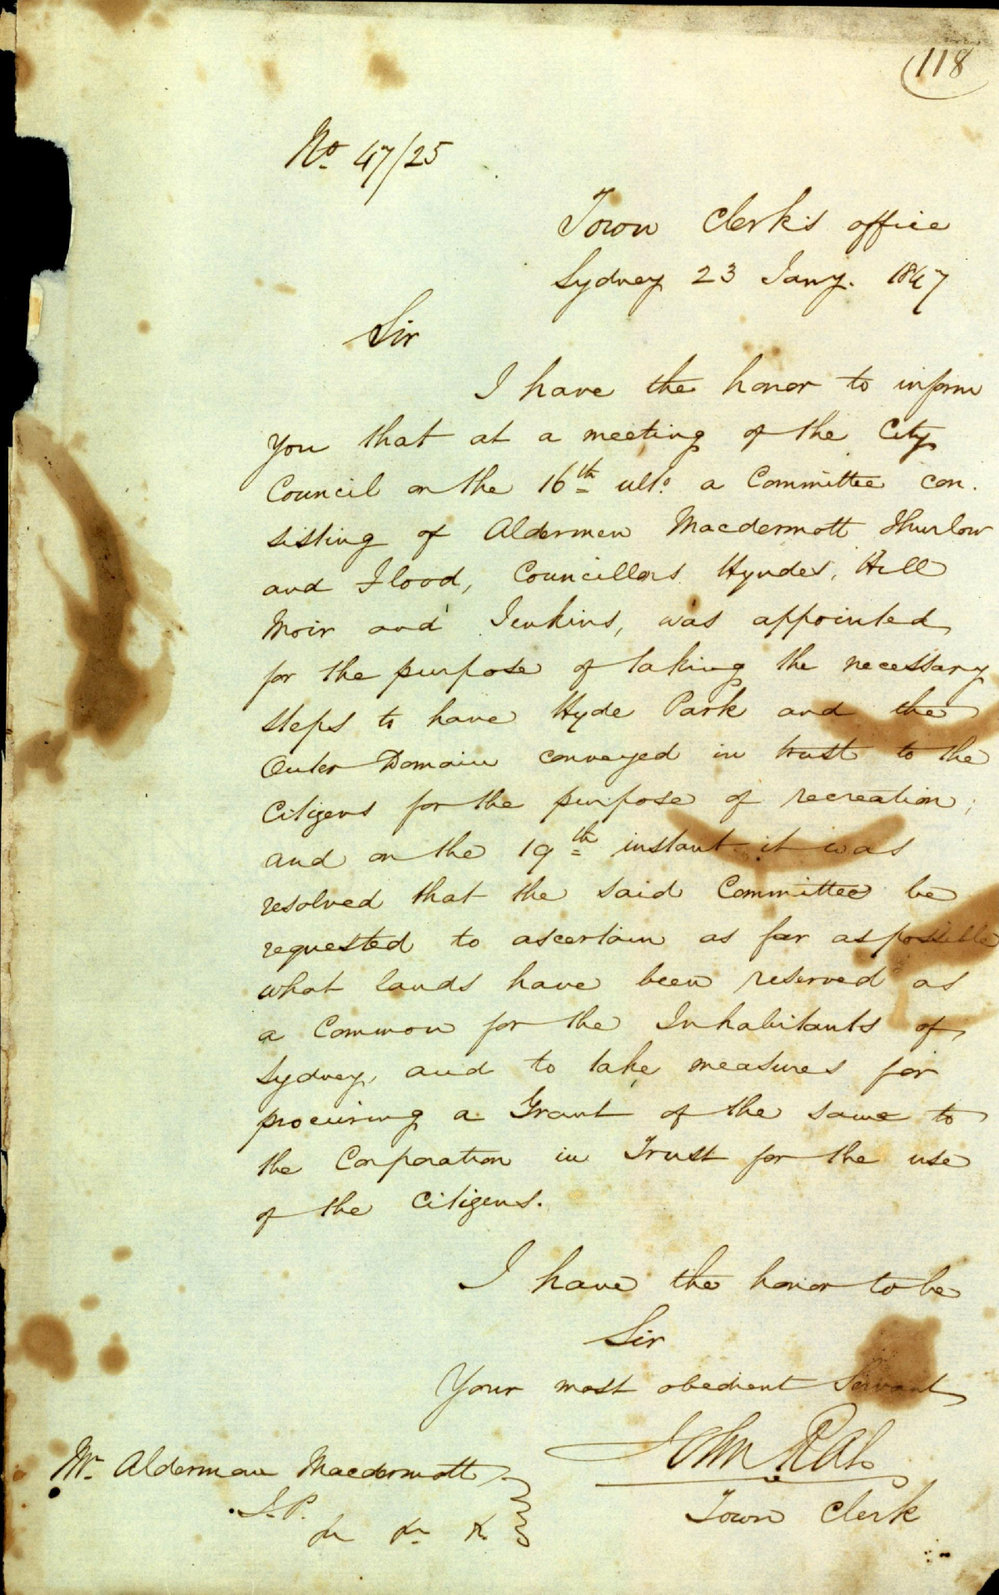 118
No 47/25
Town Clerk's office
Sydney 23 Jany. 1847
Sir
I have the honor to inform
you that at a meeting of the City
Council on the 16th ulto. a Committee con.
sisting of Aldermen Macdermott Thurlow
and Flood, Councillors Hyndes, Hill
Moir and Jenkins, was appointed
for the purpose of taking the necessary
steps to have Hyde Park and the
Outer Domain conveyed in trust to the
Citizens for the purpose of recreation;
and on the 19th instant it was
resolved that the said Committee be
requested to ascertain as far as possible
what lands have been reserved as
a Common for the Inhabitants of
Sydney, and to take measures for
procuring a Grant of the same to
the Corporation in Trust for the use
of the Citizens.
I have the honor to be
Sir
Your most obedient Servant
John
Town Clerk
Mr. Alderman Macdermott
J.P.